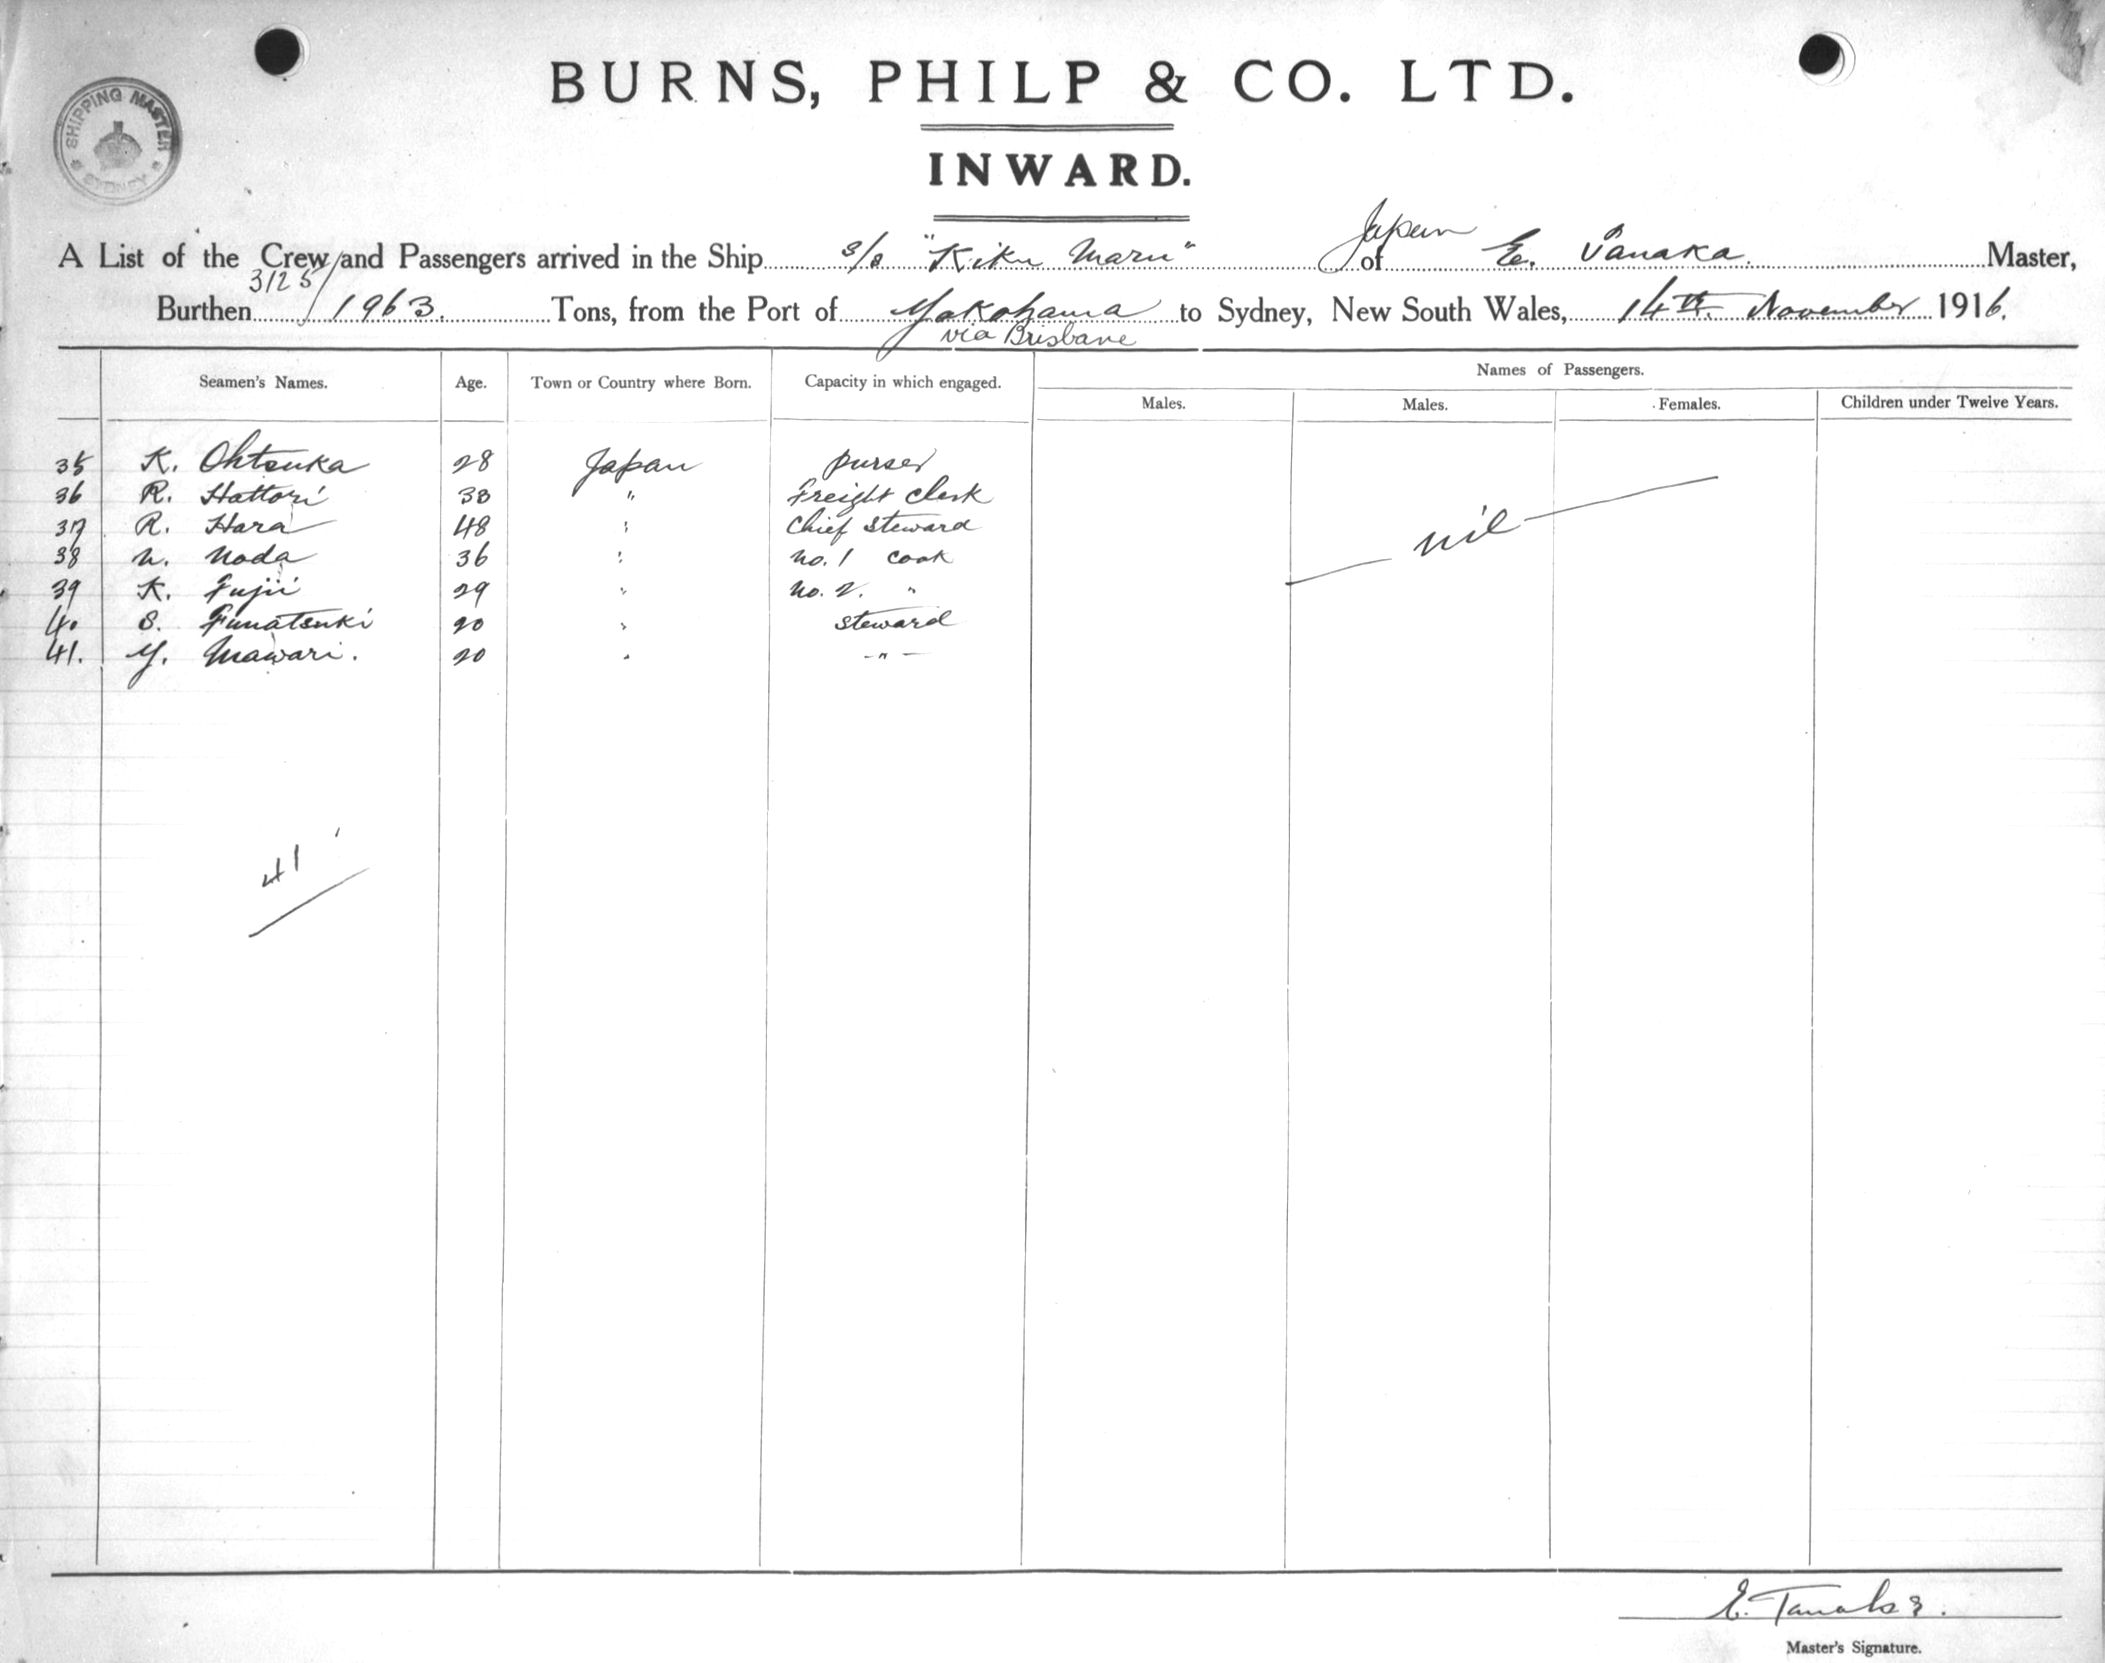 BURNS, PHILP & CO. LTD.
SHIPPING MASTER SYDNEY
INWARD.
A List of the Crew and Passengers arrived in the Ship s/s "Kiku Maru" of Japan E. Tanaka Master,
Burthen 3125/1963 Tons, from the Port of Yokohama to Sydney, New South Wales, 14th November 1916.
via Brisbane
Seamen's Names. Age. Town or Country where Born. Capacity in which engaged. Names of Passengers.
Males. Males. Females. Children under Twelve Years.
35 K. Ohtsuka 28 Japan purser
36 R. Hattori 38 " Freight Clerk
37 R. Hara 48 " Chief Steward
38 N. Noda 36 " No. 1 cook
39 K. Fujii 29 " No. 2. "
40 S. Funatsuki 20 " Steward
41. Y. Mawari. 20 " - " -
nil
41
E. Tanaka.
Master's Signature.